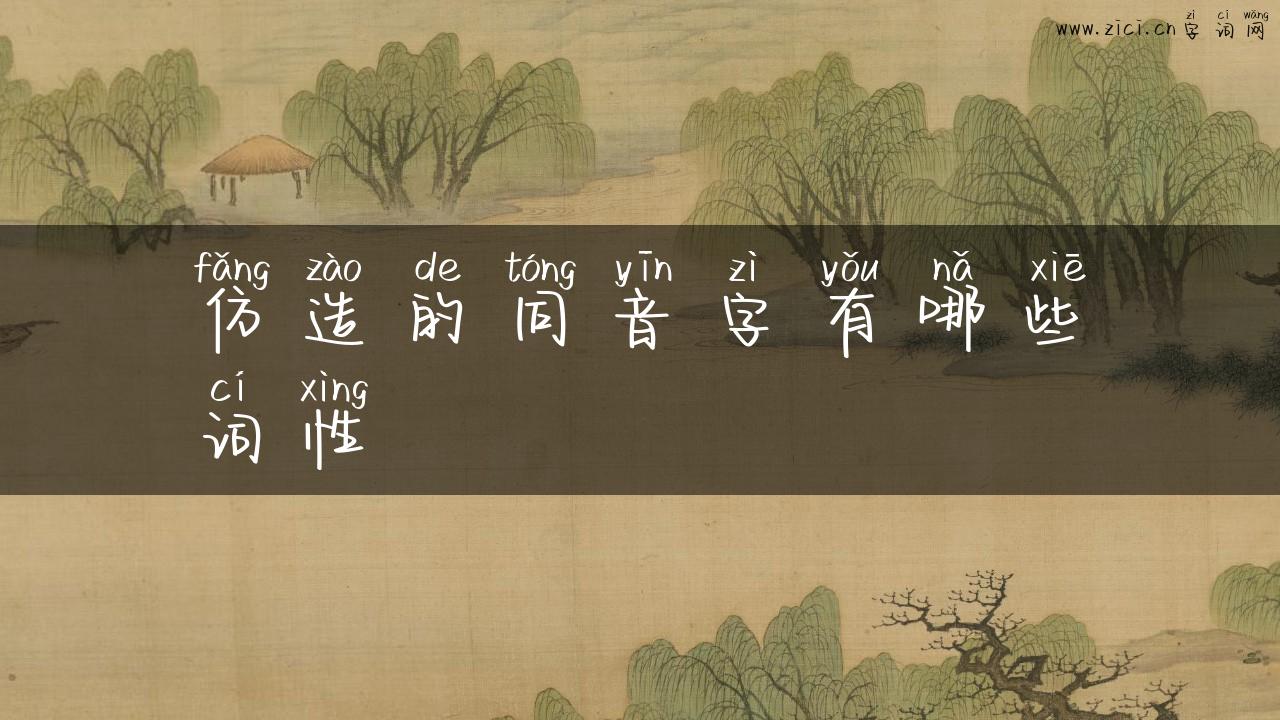 zì cí wǎng
www.zici.cn 字词网
fǎng zào de tóng yīn zì yǒu nǎ xiē
仿造的同音字有哪些
cí xìng
词性